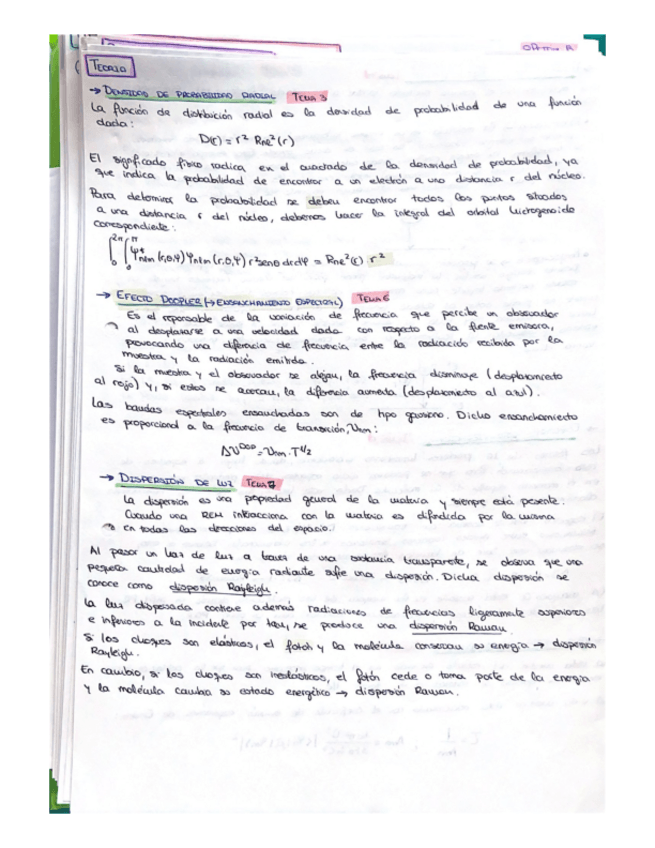 TEORÍA
→ DENSIDAD DE PROBABILIDAD RADIAL TEMA 3
La función de distribución radial es la densidad de probabilidad de una función
dada:
D(r) = r² Rnl²(r)
El significado físico radica en el cuadrado de la densidad de probabilidad, ya
que indica la probabilidad de encontrar a un electrón a una distancia r del núcleo.
Para determinar la probabilidad se deben encontrar todos los puntos situados
a una distancia r del núcleo, debemos hacer la integral del orbital hidrogenoide
correspondiente:
∫₀^2π ∫₀^π ψ*nlm (r,θ,φ) ψnlm (r,θ,φ) r² senθ dr dφ = Rnl²(r) · r²
→ EFECTO DOPPLER (→ ENSANCHAMIENTO ESPECTRAL) TEMA 6
Es el reponsable de la variación de frecuencia que percibe un observador
al desplazarse a una velocidad dada con respecto a la fuente emisora,
provocando una diferencia de frecuencia entre la radiación recibida por la
muestra y la radiación emitida.
Si la muestra y el observador se alejan, la frecuencia disminuye (desplazamiento
al rojo) y, si estos se acercan, la diferencia aumenta (desplazamiento al azul).
Las bandas espectrales ensanchadas son de tipo gausiano. Dicho ensanchamiento
es proporcional a la frecuencia de transición, νnm:
Δν^DOP = νnm · T^1/2
→ DISPERSIÓN DE LUZ TEMA 7
La dispersión es una propiedad general de la materia y siempre está presente.
Cuando una REM interacciona con la materia es difundida por la misma
en todas las direcciones del espacio.
Al pasar un haz de luz a través de una sustancia transparente, se observa que una
pequeña cantidad de energía radiante sufre una dispersión. Dicha dispersión se
conoce como dispersión Rayleigh.
La luz dispersada contiene además radiaciones de frecuencias ligeramente superiores
e inferiores a la incidente por tanto, se produce una dispersión Raman.
Si los choques son elásticos, el fotón y la molécula conservan su energía → dispersión
Rayleigh.
En cambio, si los choques son inelásticos, el fotón cede o toma parte de la energía
y la molécula cambia su estado energético → dispersión Raman.